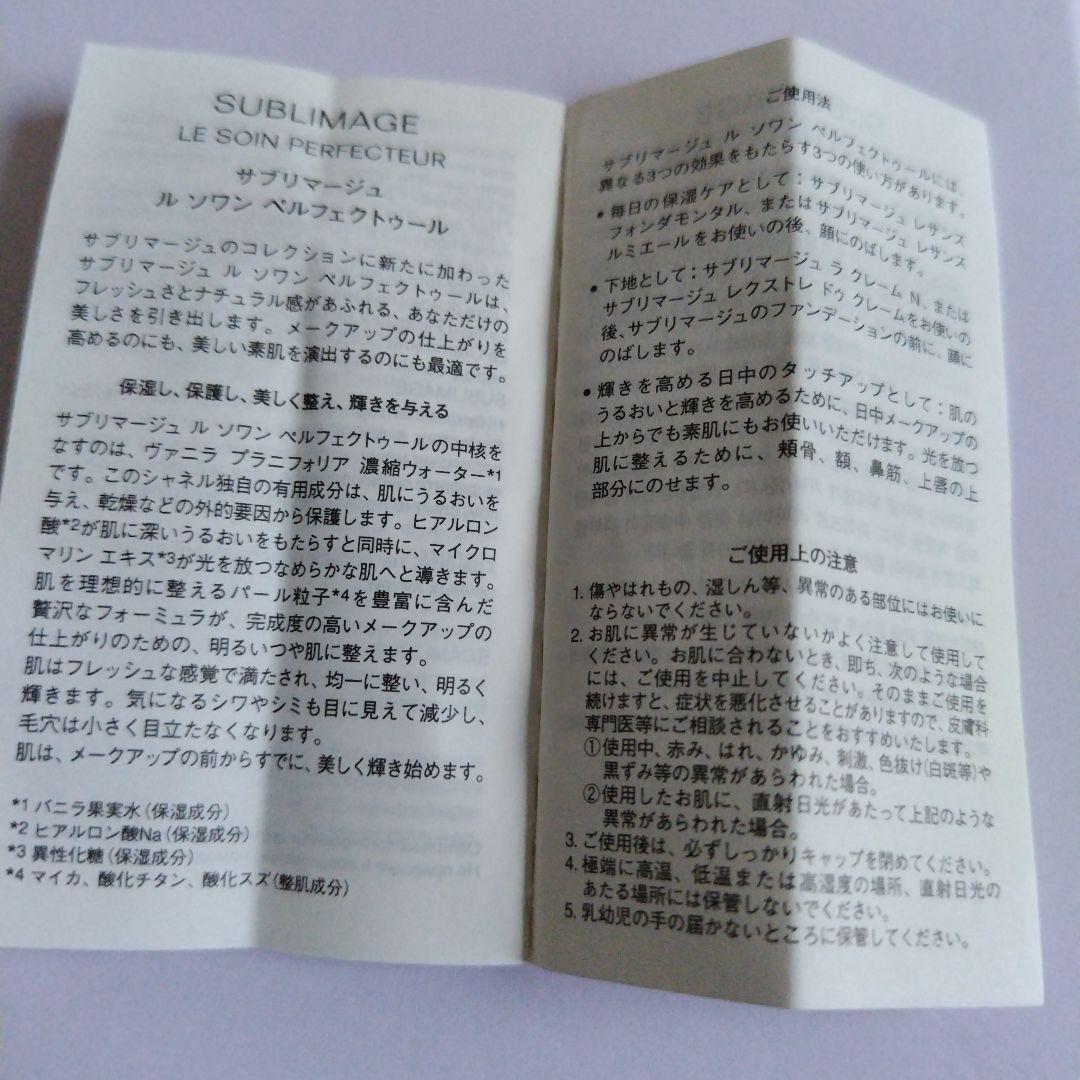 SUBLIMAGE
LE SOIN PERFECTEUR
サブリマージュ
ル ソワン ペルフェクトゥール
サブリマージュのコレクションに新たに加わった
サブリマージュ ル ソワン ペルフェクトゥールは、
フレッシュさとナチュラル感があふれる、あなただけの
美しさを引き出します。メークアップの仕上がりを
高めるのにも、美しい素肌を演出するのにも最適です。
保湿し、保護し、美しく整え、輝きを与える
サブリマージュ ル ソワン ペルフェクトゥールの中核を
なすのは、ヴァニラ プラニフォリア 濃縮ウォーター*1
です。このシャネル独自の有用成分は、肌にうるおいを
与え、乾燥などの外的要因から保護します。ヒアルロン
酸*2が肌に深いうるおいをもたらすと同時に、マイクロ
マリン エキス*3が光を放つなめらかな肌へと導きます。
肌を理想的に整えるパール粒子*4を豊富に含んだ
贅沢なフォーミュラが、完成度の高いメークアップの
仕上がりのための、明るいつや肌に整えます。
肌はフレッシュな感覚で満たされ、均一に整い、明るく
輝きます。気になるシワやシミも目に見えて減少し、
毛穴は小さく目立たなくなります。
肌は、メークアップの前からすでに、美しく輝き始めます。
*1 バニラ果実水(保湿成分)
*2 ヒアルロン酸Na(保湿成分)
*3 異性化糖(保湿成分)
*4 マイカ、酸化チタン、酸化スズ(整肌成分)
ご使用法
サブリマージュ ル ソワン ペルフェクトゥールには、
異なる3つの効果をもたらす3つの使い方があります。
• 毎日の保湿ケアとして：サブリマージュ レサンス
フォンダモンタル、またはサブリマージュ レサンス
ルミエールをお使いの後、顔にのばします。
• 下地として：サブリマージュ ラ クレーム N、または
サブリマージュ レクストレ ドゥ クレームをお使いの
後、サブリマージュのファンデーションの前に、顔に
のばします。
• 輝きを高める日中のタッチアップとして：肌の
うるおいと輝きを高めるために、日中メークアップの
上からでも素肌にもお使いいただけます。光を放つ
肌に整えるために、頬骨、額、鼻筋、上唇の上
部分にのせます。
ご使用上の注意
1. 傷やはれもの、湿しん等、異常のある部位にはお使いに
ならないでください。
2. お肌に異常が生じていないかよく注意して使用して
ください。お肌に合わないとき、即ち、次のような場合
には、ご使用を中止してください。そのままご使用を
続けますと、症状を悪化させることがありますので、皮膚科
専門医等にご相談されることをおすすめいたします。
①使用中、赤み、はれ、かゆみ、刺激、色抜け(白斑等)や
黒ずみ等の異常があらわれた場合。
②使用したお肌に、直射日光があたって上記のような
異常があらわれた場合。
3. ご使用後は、必ずしっかりキャップを閉めてください。
4. 極端に高温、低温または高湿度の場所、直射日光の
あたる場所には保管しないでください。
5. 乳幼児の手の届かないところに保管してください。